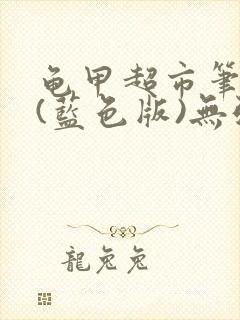 龟甲超市筆
(藍色版)無
龍兔兔